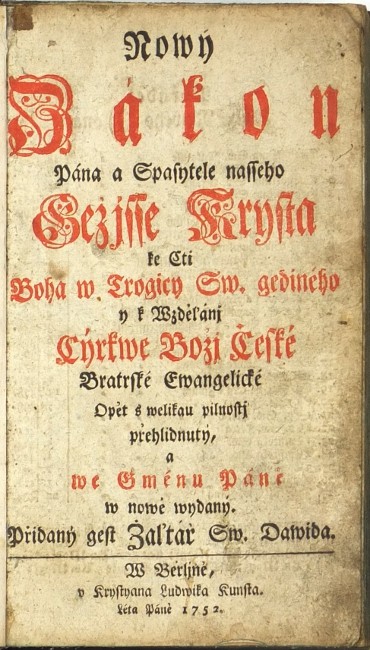 Nowý
Zákon
Pána a Spasytele nasseho
Gežjsse Krysta
ke Cti
Boha w Trogicy Sw. gediného
y k Wzděľánj
Cýrkwe Božj České
Bratrské Ewangelické
Opět s welikau pilnostj
přehlídnutý,
a
we Gménu Páně
w nowě wydaný.
Přidaný gest Žaľtář Sw. Dawida.
W Berljně,
v Krystyana Ludwika Kunsta.
Léta Páně 1752.